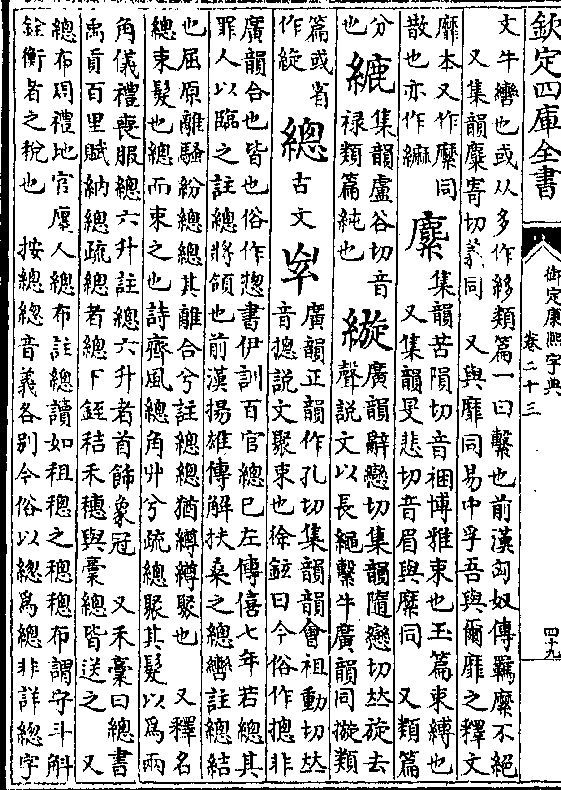 欽定四庫全書
御定康熙字典
卷二十三
四十九
文牛轡也或从多作𦃇類篇一曰繫也前漢匈奴傳羈縻不絕
又集韻縻寄切義同 又與靡同易中孚吾與爾靡之釋文
靡本又作縻同
散也亦作䌕
䌕 集韻苦隕切音稇博雅束也玉篇束縛也
又集韻旻悲切音眉與縻同 又類篇
分
也
䌟 集韻盧谷切音
祿類篇純也
縼 廣韻辭戀切集韻隨戀切𠀤旋去
聲說文以長繩繫牛廣韻同㨔類
篇或省
作綻
總 古文
𡴞 廣韻正韻作孔切集韻韻會祖動切𠀤
音摠說文聚束也徐鉉曰今俗作摠非
廣韻合也皆也俗作揔書伊訓百官總已左傳僖七年若總其
罪人以臨之註總將領也前漢揚雄傳解扶桑之總轡註總結
也屈原離騷紛總總其離合兮註總總猶繜繜聚也 又釋名
總束髮也總而束之也詩齊風總角丱兮疏總聚其髮以為兩
角儀禮喪服總六升註總六升者首飾象冠 又禾稾曰總書
禹貢百里賦納總疏總者總下銍秸禾穗與稾總皆送之 又
總布周禮地官廛人總布註總讀如租稯之稯稯布謂守斗斛
銓衡者之稅也 按緫總音義各别今俗以緫為總非詳緫字